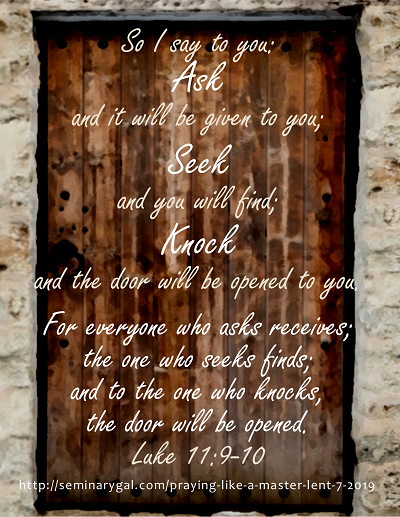 So I say to you:
Ask
and it will be given to you;
Seek
and you will find;
Knock
and the door will be opened to you.
For everyone who asks receives;
the one who seeks finds;
and to the one who knocks,
the door will be opened.
Luke 11:9-10
http://seminarygal.com/praying-like-a-master-lent-7-2019